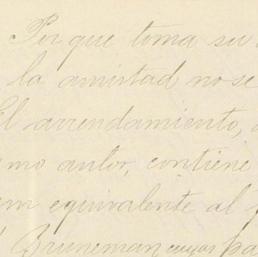 Por que toma su
la amistad no se
El arrendamiento,
mo autor, contiene
equivalente al
Bruneman cuyas